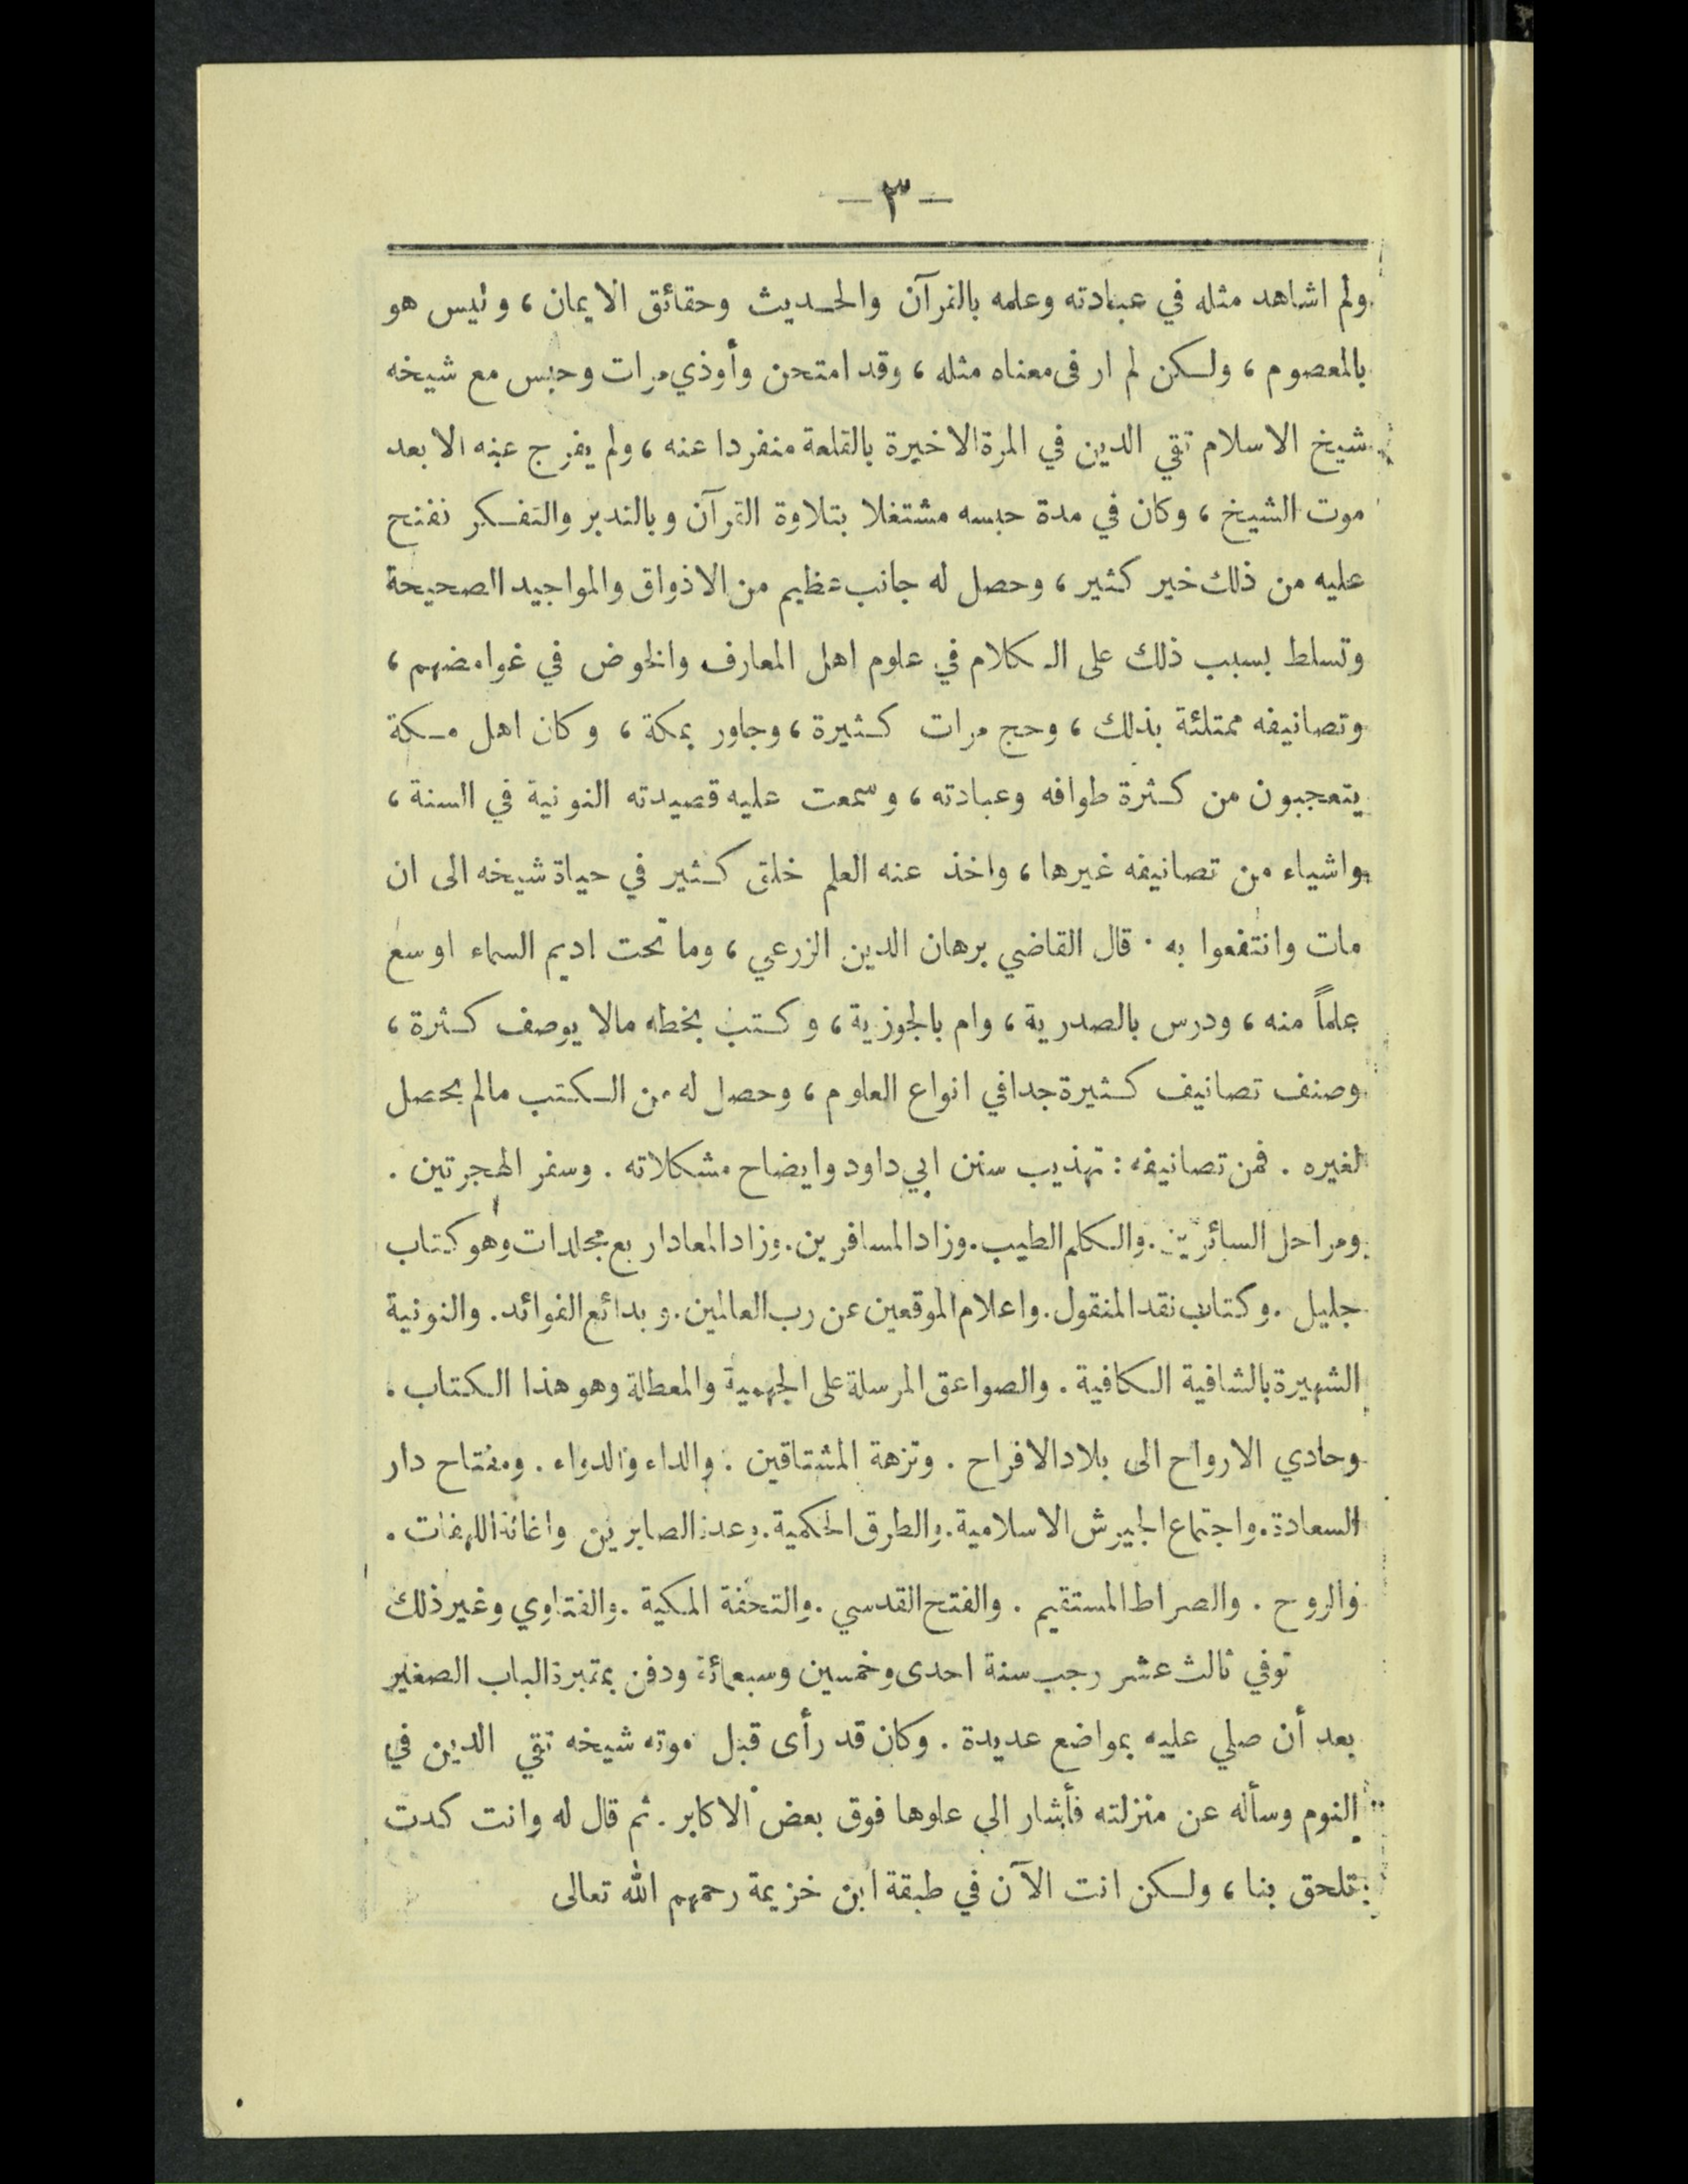 — ٣ —
ولم اشاهد مثله في عبادته وعلمه بالقرآن والحديث وحقائق الايمان ، وليس هو
بالمعصوم ، ولكن لم ار فى معناه مثله ، وقد امتحن وأوذي مرات وحبس مع شيخه
شيخ الاسلام تقي الدين في المرة الاخيرة بالقلعة منفردا عنه ، ولم يفرج عنه الا بعد
موت الشيخ ، وكان في مدة حبسه مشتغلا بتلاوة القرآن وبالتدبر والتفكر ففتح
عليه من ذلك خير كثير ، وحصل له جانب عظيم من الاذواق والمواجيد الصحيحة
وتسلط بسبب ذلك على الكلام في علوم اهل المعارف والخوض في غوامضهم ،
وتصانيفه ممتلئة بذلك ، وحج مرات كثيرة ، وجاور بمكة ، وكان اهل مكة
يتعجبون من كثرة طوافه وعبادته ، وسمعت عليه قصيدته النونية في السنة ،
واشياء من تصانيفه غيرها ، واخذ عنه العلم خلق كثير في حياة شيخه الى ان
مات وانتفعوا به . قال القاضي برهان الدين الزرعي ، وما تحت اديم السماء اوسع
علماً منه ، ودرس بالصدرية ، وام بالجوزية ، وكتب بخطه مالا يوصف كثرة ،
وصنف تصانيف كثيرة جدا في انواع العلوم ، وحصل له من الكتب مالم يحصل
لغيره . فمن تصانيفه : تهذيب سنن ابي داود وايضاح مشكلاته . وسفر الهجرتين .
ومراحل السائرين . والكلم الطيب . وزاد المسافرين . وزاد المعاد اربع مجلدات وهو كتاب
جليل . وكتاب نقد المنقول . واعلام الموقعين عن رب العالمين . وبدائع الفوائد . والنونية
الشهيرة بالشافية الكافية . والصواعق المرسلة على الجهمية والمعطلة وهو هذا الكتاب .
وحادي الارواح الى بلاد الافراح . ونزهة المشتاقين . والداء والدواء . ومفتاح دار
السعادة . واجتماع الجيوش الاسلامية . والطرق الحكمية . وعدة الصابرين واغاثة اللهفات .
والروح . والصراط المستقيم . والفتح القدسي . والتحفة المكية . والفتاوي وغير ذلك
توفي ثالث عشر رجب سنة احدى وخمسين وسبعمائة ودفن بمقبرة الباب الصغير
بعد أن صلي عليه بمواضع عديدة . وكان قد رأى قبل موته شيخه تقي الدين في
النوم وسأله عن منزلته فأشار الي علوها فوق بعض الاكابر . ثم قال له وانت كدت
تلحق بنا ، ولكن انت الآن في طبقة ابن خزيمة رحمهم الله تعالى